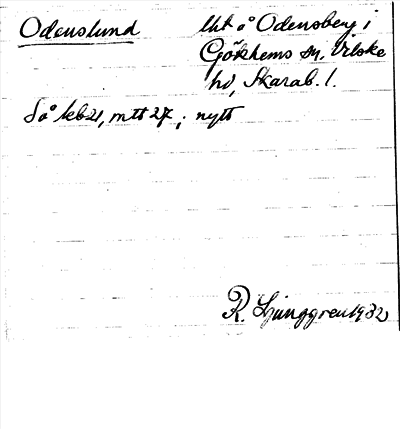 Odenslund lht å Odensberg i
Gökhems sn, Vilske
hd, Skarab. l.
Så kb21, mtt 27; nytt
R. Ljunggren 1932